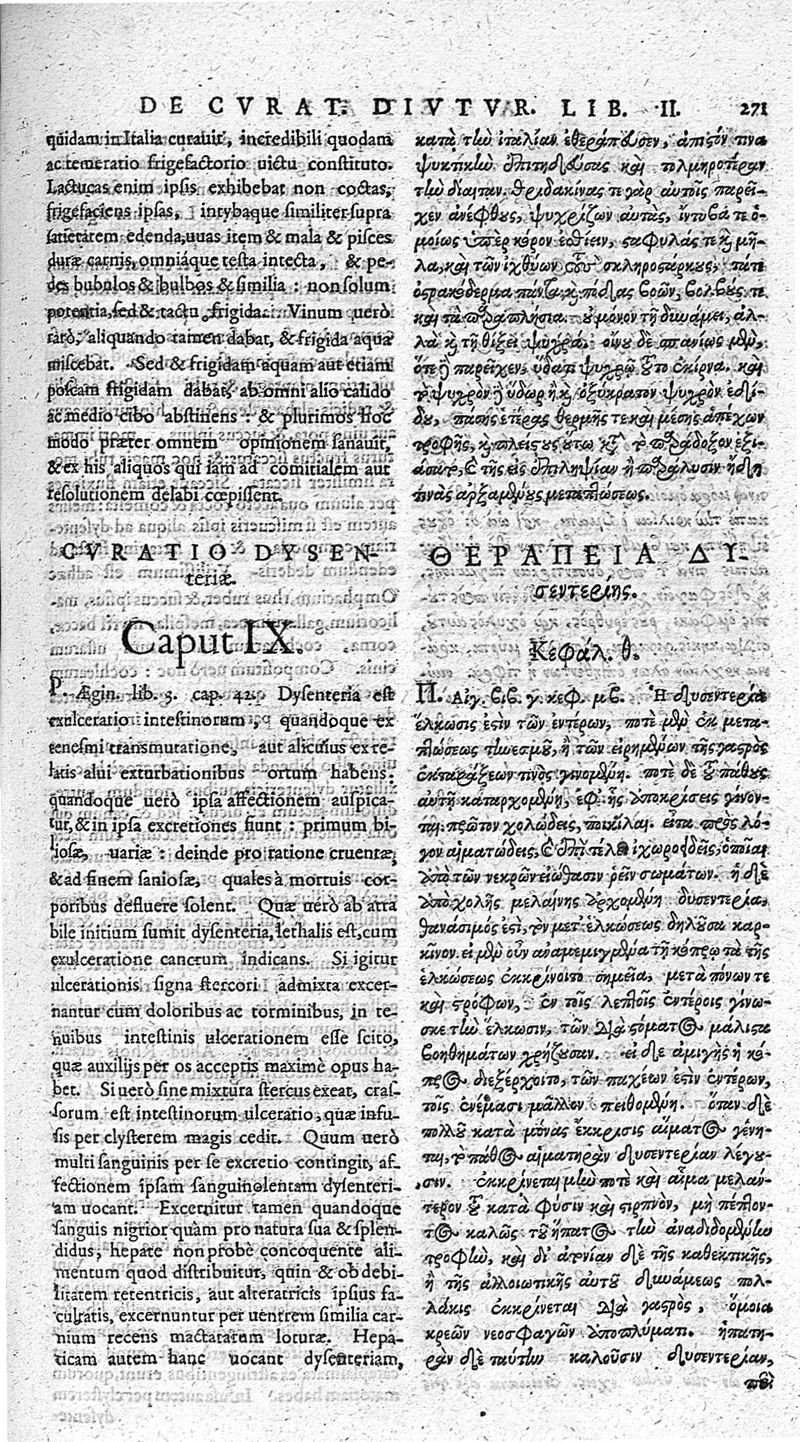 DE CVRAT. DIVTVR. LIB. II. 271
quidam in Italia curauit, incredibili quodam
ac temerario frigefactorio uictu constituto.
Lactucas enim ipsis exhibebat non coctas,
frigefaciens ipsas, intybaque similiter supra
satietatem edenda, uuas item & mala & pisces
duræ carnis, omniáque testa intecta, & pe-
des bubulos & bulbos & similia: non solum
potentia, sed & tactu frigida. Vinum uerò
rarò, aliquando tamen dabat, & frigida aqua
miscebat. Sed & frigidam aquam aut etiam
poscam frigidam dabat, ab omni alio calido
ac medio cibo abstinens: & plurimos hoc
modo præter omnem opinionem sanauit,
& ex his aliquos qui iam ad comitialem aut
resolutionem delabi cœpissent.
CVRATIO DYSEN-
teriæ.
Caput IX.
P. Ægin. lib. 3. cap. 42. Dysenteria est
exulceratio intestinorum, quandoque ex
tenesmi transmutatione, aut alicuius ex re-
latis alui exturbationibus ortum habens:
quandoque uerò ipsa affectionem auspica-
tur, & in ipsa excretiones fiunt: primum bi-
liosæ, uariæ: deinde pro ratione cruentæ,
& ad finem saniosæ, quales à mortuis cor-
poribus defluere solent. Quæ uerò ab atra
bile initium sumit dysenteria, lethalis est, cum
exulceratione cancrum indicans. Si igitur
ulcerationis signa stercori admixta excer-
nantur cum doloribus ac torminibus, in te-
nuibus intestinis ulcerationem esse scito,
quæ auxilijs per os acceptis maximè opus ha-
bet. Si uerò sine mixtura stercus exeat, cras-
sorum est intestinorum ulceratio, quæ infu-
sis per clysterem magis cedit. Quum uerò
multi sanguinis per se excretio contingit, af-
fectionem ipsam sanguinolentam dysenteri-
am uocant. Excernitur tamen quandoque
sanguis nigrior quàm pro natura sua & splen-
didus; hepate non probè concoquente ali-
mentum quod distribuitur, quin & ob debi-
litatem retentricis, aut alteratricis ipsius fa-
cultatis, excernuntur per uentrem similia car-
nium recens mactatarum loturæ. Hepa-
ticam autem hanc uocant dysenteriam,
κατὰ τὴν ἰταλίαν ἐθεράπευσεν, ἄπιστόν τινα
ψυκτικὴν ἐπιτηδεύσας καὶ τολμηροτέραν
τὴν δίαιταν. θριδακίνας τε γὰρ αὐτοῖς παρεῖ-
χεν ἀνέφθους, ψυχρίζων αὐτὰς, ἴντυβά τε ὁ-
μοίως ὑπὲρ κόρον ἐσθίειν, σταφυλάς τε καὶ μῆ-
λα, καὶ τῶν ἰχθύων τοὺς σκληροσάρκους, τά τε
ὀστρακόδερμα πάντα καὶ πόδας βοῶν, βολβούς τε
καὶ τὰ παραπλήσια. οὐ μόνον τῇ δυνάμει, ἀλ-
λὰ καὶ τῇ θίξει ψυχρά. οἴνου δὲ σπανίως μὲν,
ὅτε δὲ παρεῖχεν, ὕδατι ψυχρῷ τοῦτο ἐκίρνα. καὶ
τὸ ψυχρὸν δὲ ὕδωρ ἢ καὶ ὀξύκρατον ψυχρὸν ἐδί-
δου, πάσης ἑτέρας θερμῆς τε καὶ μέσης ἀπέχων
τροφῆς, καὶ πλείστους οὕτω κατὰ τὸ παράδοξον ἐξι-
άσατο, καὶ τῆς εἰς ἐπιληψίαν ἢ παράλυσιν ἤδη
τινὰς ἀρξαμένους μεταπτώσεως.
ΘΕΡΑΠΕΙΑ ΔΥ-
σεντερίης.
Κεφάλ. θ.
Π. Αἰγ. βιβ. γ. κεφ. μβ. Ἡ δυσεντερία
ἕλκωσίς ἐστιν τῶν ἐντέρων, ποτὲ μὲν ἐκ μετα-
πτώσεως τεινεσμοῦ, ἢ τῶν εἰρημένων τῆς γαστρὸς
ἐκταράξεών τινος γινομένη. ποτὲ δὲ τοῦ πάθους
αὐτὴ καταρχομένη, ἐφ' ἧς ὑποκρίσεις γίνον-
ται πρῶτον χολώδεις, ποικίλαι. εἶτα πρὸς λό-
γον αἱματώδεις, καὶ ἐπὶ τέλει ἰχωροειδεῖς, ὁποῖαι
ἀπὸ τῶν νεκρῶν εἰώθασιν ῥεῖν σωμάτων. ἡ δὲ
ἀπὸ χολῆς μελαίνης ἀρχομένη δυσεντερία,
θανάσιμός ἐστι, τὸν μετ' ἑλκώσεως δηλοῦσα καρ-
κῖνον. εἰ μὲν οὖν ἀναμεμιγμένα τῇ κόπρῳ τὰ τῆς
ἑλκώσεως ἐκκρίνοιτο σημεῖα, μετὰ πόνων τε
καὶ στρόφων, ἐν τοῖς λεπτοῖς ἐντέροις γίνω-
σκε τὴν ἕλκωσιν, τῶν διὰ στόματος μάλιστα
βοηθημάτων χρῄζουσαν. εἰ δὲ ἀμιγὴς ἡ κό-
προς διεξέρχοιτο, τῶν παχέων ἐστὶν ἐντέρων,
τοῖς ἐνέμασι μᾶλλον πειθομένη. ὅταν δὲ
πολλοῦ κατὰ μόνας ἔκκρισις αἵματος γένη-
ται, τὸ πάθος αἱματηρὰν δυσεντερίαν λέγου-
σιν. ἐκκρίνεται μέν τοι ποτὲ καὶ αἷμα μελάν-
τερον τοῦ κατὰ φύσιν καὶ στιλπνὸν, μὴ πέττον-
τος καλῶς τοῦ ἥπατος τὴν ἀναδιδομένην
τροφὴν, καὶ δι' ἀτονίαν δὲ τῆς καθεκτικῆς,
ἢ τῆς ἀλλοιωτικῆς αὐτοῦ δυνάμεως πολ-
λάκις ἐκκρίνεται διὰ γαστρὸς, ὅμοια
κρεῶν νεοσφαγῶν ἀποπλύματι. ἡπατη-
ρὰν δὲ ταύτην καλοῦσιν δυσεντερίαν,